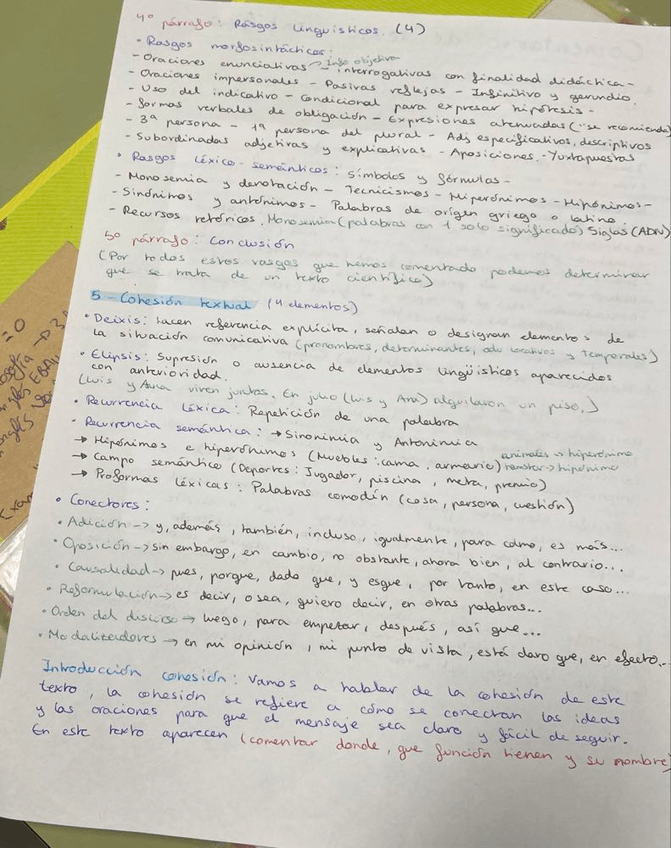 4º párrafo: Rasgos Linguisticos. (4)
• Rasgos morfosintácticos:
- Oraciones enunciativas → Info objetiva
interrogativas con finalidad didáctica -
- Oraciones impersonales - Pasivas reflejas - Infinitivo y gerundio.
- Uso del indicativo - Condicional para expresar hipótesis -
- formas verbales de obligación - Expresiones atenuadas (...se recomienda)
- 3ª persona - 1ª persona del plural - Adj especificativos, descriptivos
- Subordinadas adjetivas y explicativas - Aposiciones - Yuxtapuestas
• Rasgos Léxico-semánticos: Símbolos y fórmulas -
- Monosemia y denotación - Tecnicismos - Hiperónimos - Hipónimos -
- Sinónimos y antónimos - Palabras de origen griego o latino.
- Recursos retóricos. Monosemia (palabras con 1 solo significado) Siglas (ADN)
5º párrafo: Conclusión
(Por todos estos rasgos que hemos comentado podemos determinar
que se trata de un texto científico)
5 - Cohesión textual (4 elementos)
• Deixis: hacen referencia explícita, señalan o designan elementos de
la situación comunicativa (pronombres, determinantes, adv locativos y temporales)
• Elipsis: Supresión o ausencia de elementos lingüísticos aparecidos
con anterioridad.
(Luis y Ana viven juntos. En julio (Luis y Ana) alquilaron un piso.)
• Recurrencia léxica: Repetición de una palabra
• Recurrencia semántica: → Sinonimia y Antonimia
→ Hipónimos e hiperónimos (Muebles: cama, armario) animales → hiperónimo
hamster → hipónimo
→ Campo semántico (Deportes: Jugador, piscina, meta, premio)
→ Proformas léxicas: Palabras comodín (cosa, persona, cuestión)
• Conectores:
• Adición → y, además, también, incluso, igualmente, para colmo, es más...
• Oposición → sin embargo, en cambio, no obstante, ahora bien, al contrario...
• Causalidad → pues, porque, dado que, y es que, por tanto, en este caso...
• Reformulación → es decir, o sea, quiero decir, en otras palabras...
• Orden del discurso → luego, para empezar, después, así que...
• Modalizadores → en mi opinión, mi punto de vista, está claro que, en efecto...
Introducción cohesión: Vamos a hablar de la cohesión de este
texto, la cohesión se refiere a cómo se conectan las ideas
y las oraciones para que el mensaje sea claro y fácil de seguir.
En este texto aparecen (comentar donde, que función tienen y su nombre)